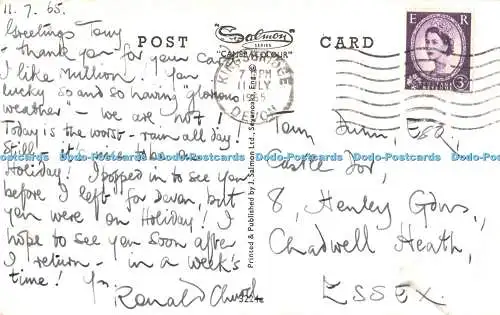 11.7.65.
Greetings Tony
- thank you for your card
I like Mullion! You
lucky so and so having "glorious
weather" - we are not!
Today is the worst - rain all day!
Still - it's nice to be on
Holiday! I popped in to see you
before I left for Devon, but
you were on Holiday! I
hope to see you soon after
I return - in a week's
time! Yrs.
Ronald Church
POST
"Salmon
SERIES
CAMERACOLOUR"
CARD
KINGSBRIDGE
7 PM
11 JLY
1965
DEVON
Printed & Published by J. Salmon Ltd., Sevenoaks, Eng. ©
3224c
E R
Tony Dunn Esq.,
8, Henley Gdns,
Chadwell Heath,
ESSEX.
Dodo-Postcards Dodo-Postcards Dodo-Postcards Dodo-Postcards Dodo-Postcards